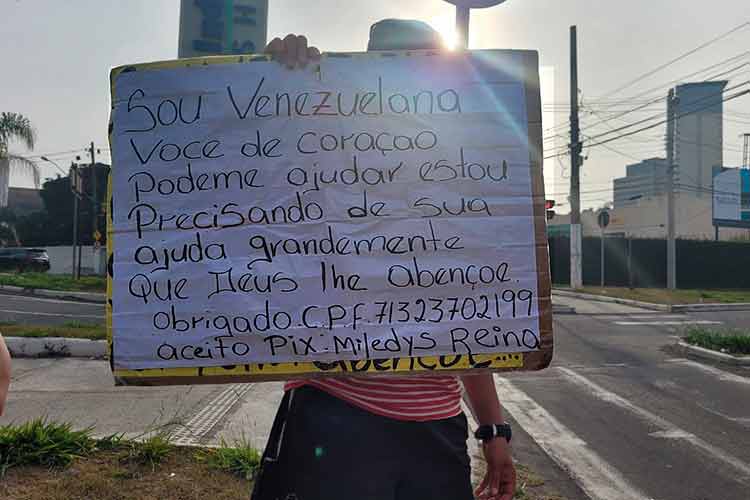 Sou Venezuelana
Voce de coraçao
Podeme ajudar estou
Precisando de sua
ajuda grandemente
Que Deus lhe abençoe.
obrigado.C.P.f.71323702199
aceito Pix:Miledys Reina
abençoe...